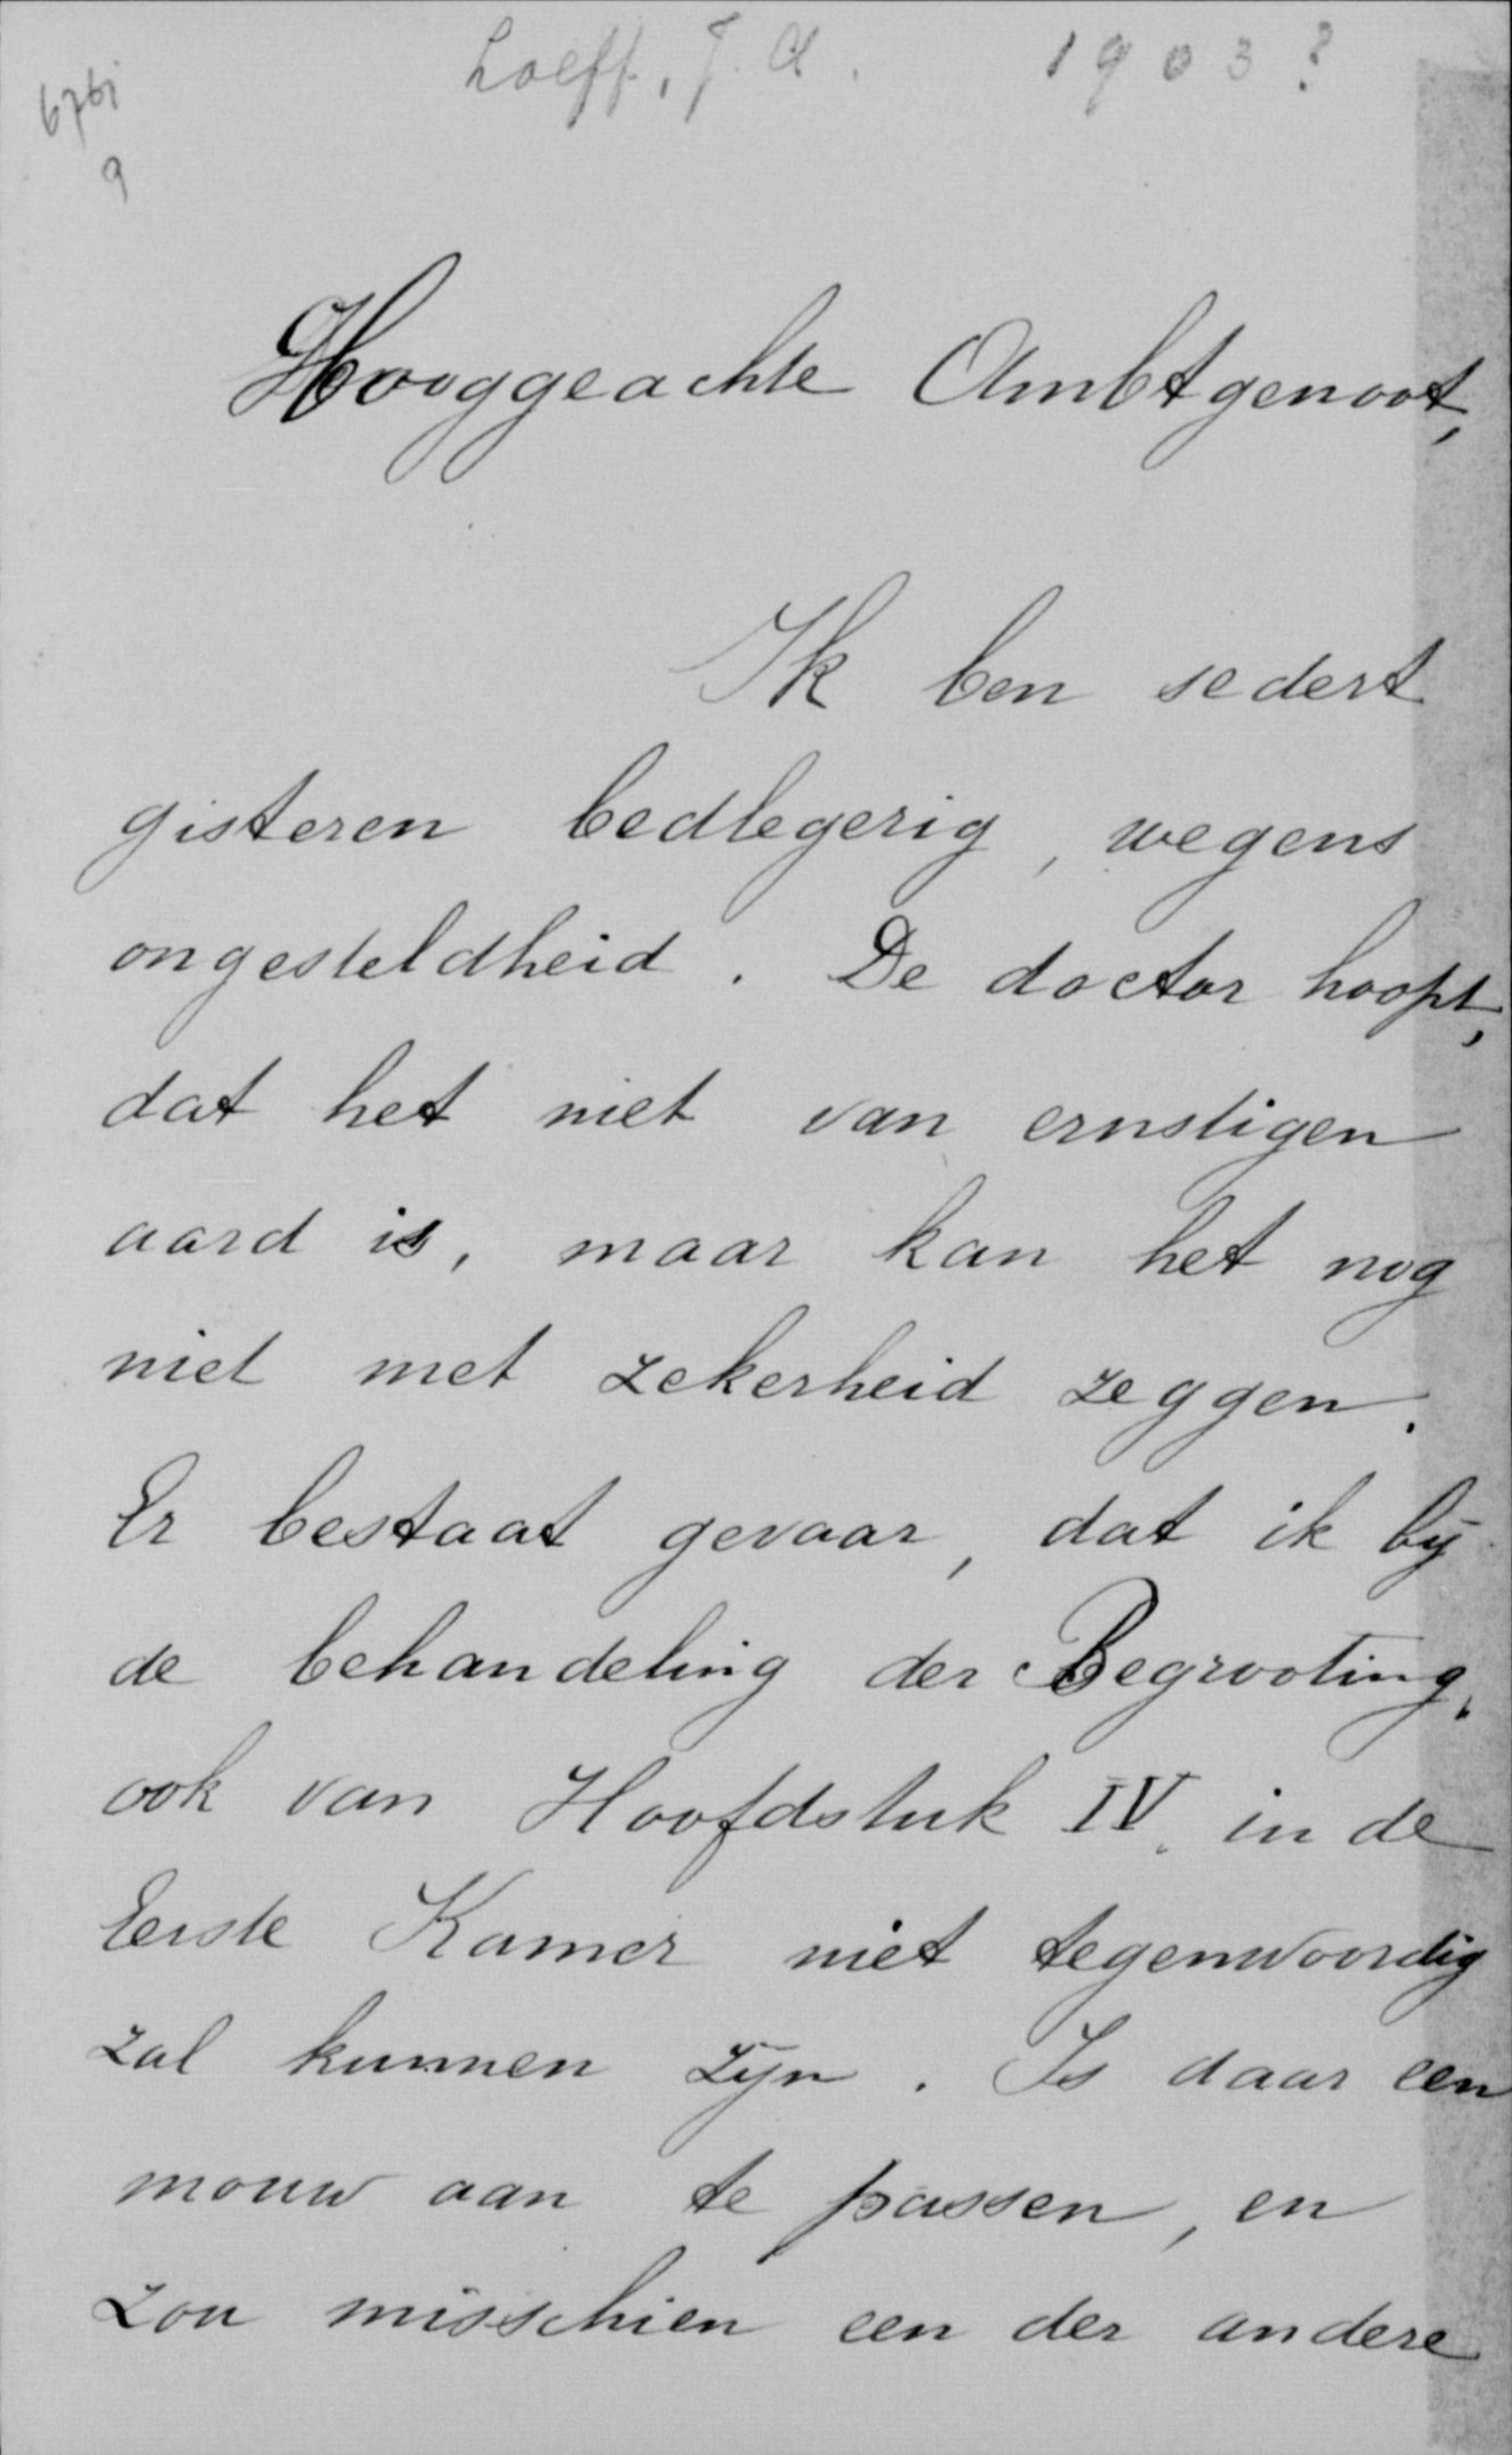 Loeff, J. A. 1903?
9
Hooggeachte Ambtgenoot,
Ik ben sedert
gisteren bedlegerig, wegens
ongesteldheid. De doctor hoopt,
dat het niet van ernstigen
aard is, maar kan het nog
niet met zekerheid zeggen.
Er bestaat gevaar, dat ik bij
de behandeling der Begrooting,
ook van Hoofdstuk IV, in de
Eerste Kamer niet tegenwoordig
zal kunnen zijn. Is daar een
mouw aan te passen, en
zou misschien een der andere